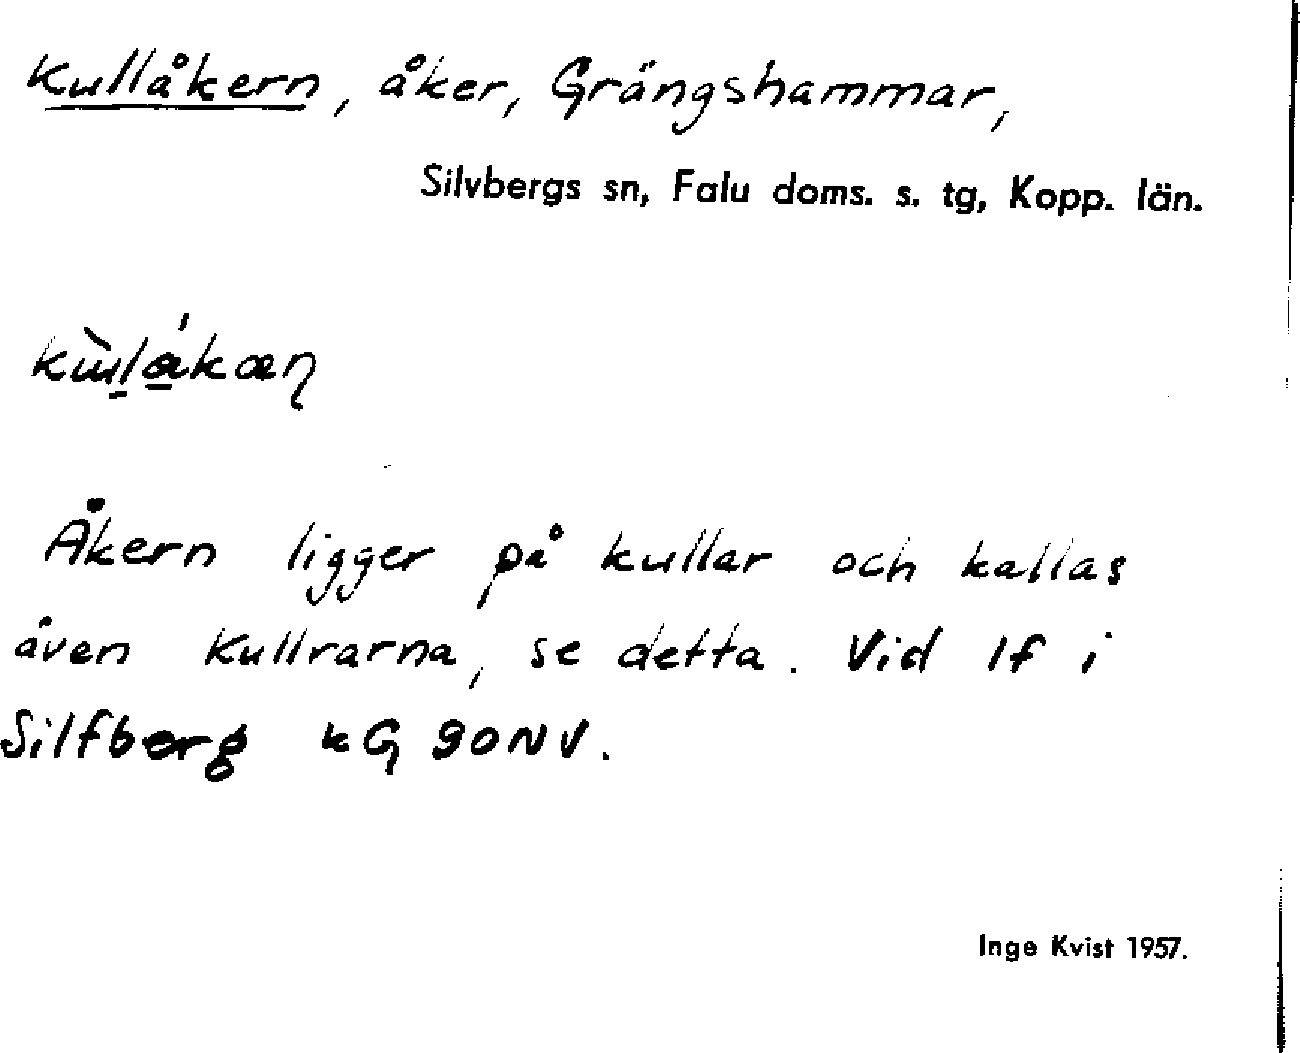 Kullåkern, åker, Grängshammar,
Silvbergs sn, Falu doms. s. tg, Kopp. län.
Åkern ligger på kullar och kallas
även Kullrarna, se detta. Vid lf i
Silfberg kG 90NV.
Inge Kvist 1957.